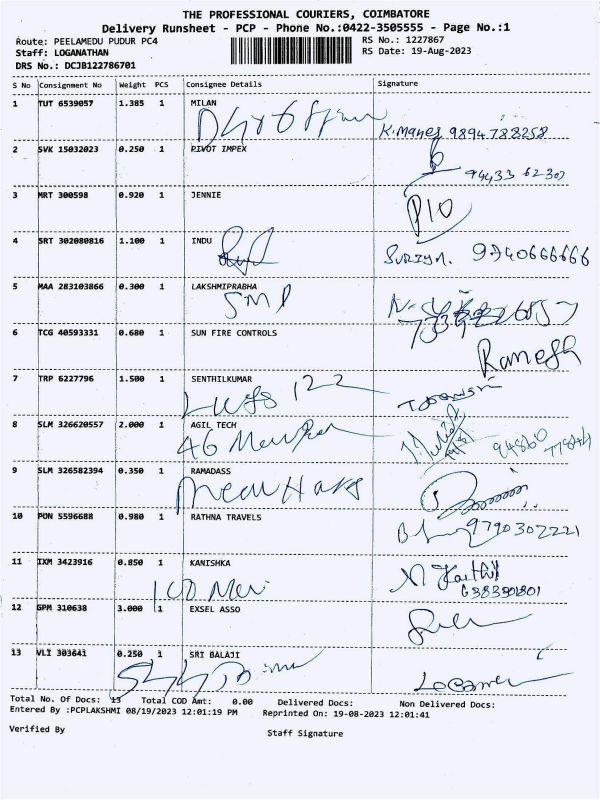 THE PROFESSIONAL COURIERS, COIMBATORE
Delivery Runsheet - PCP - Phone No.:0422-3505555 - Page No.:1
Route: PEELAMEDU PUDUR PC4
RS No.: 1227867
Staff: LOGANATHAN
RS Date: 19-Aug-2023
DRS No.: DCJB122786701
S No Consignment No Weight PCS Consignee Details Signature
1 TUT 6539057 1.385 1 MILAN
K. Manej 9894788258
2 SVK 15032023 0.250 1 PIVOT IMPEX
94433 62307
3 MRT 300598 0.920 1 JENNIE
P10
4 SRT 302080816 1.100 1 INDU
Suriya. 9740666666
5 MAA 283103866 0.300 1 LAKSHMIPRABHA
SMP
6 TCG 40593331 0.680 1 SUN FIRE CONTROLS
Ramesh
7 TRP 6227796 1.500 1 SENTHILKUMAR
122
8 SLM 326620557 2.000 1 AGIL TECH
46
94860 77844
9 SLM 326582394 0.350 1 RAMADASS
10 PON 5596688 0.980 1 RATHNA TRAVELS
9790302221
11 IXM 3423916 0.850 1 KANISHKA
12 GPM 310638 3.000 1 EXSEL ASSO
13 VLI 303641 0.250 1 SRI BALAJI
Total No. Of Docs: 13 Total COD Amt: 0.00 Delivered Docs: Non Delivered Docs:
Entered By :PCPLAKSHMI 08/19/2023 12:01:19 PM Reprinted On: 19-08-2023 12:01:41
Verified By
Staff Signature